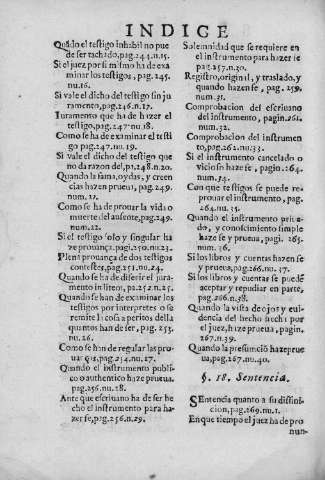 INDICE
Quãdo el testigo inhabil no pue
de ser tachado, pag. 244. n. 15.
Si el juez por si mismo ha de exa
minar los testigos, pag. 245.
nu. 16.
Si vale el dicho del testigo sin ju
ramento, pag. 246. n. 17.
Iuramento que ha de hazer el
testigo, pag. 247. nu. 18.
Como se ha de examinar el testi
go pag. 247. nu. 19.
Si vale el dicho del testigo que
no da razon del, pi. 248. n. 20.
Quando la fama, oydas, y creen
cias hazen prueua, pag. 249.
num. 21.
Como se ha de prouar la vida o
muerte del ausente, pag. 249.
num. 22.
Si el testigo solo y singular ha
ze prouança. pagi. 250. nu. 23.
Plena prouança de dos testigos
contestes, pag. 251. nu. 24.
Quando se ha de diferir el jura-
mento in litem, pa. 252. n. 25.
Quando se han de examinar los
testigos por interpretes o se
remite la cosa a peritos della
quantos han de ser, pag. 253.
nu. 26.
Como se han de regular las pro
uanças, pag. 254. nu. 27.
Quando el instrumento publi-
co o authentico haze prueua.
pag. 256. nu. 28.
Ante que escriuano ha de ser he
cho el instrumento para ha-
zer fe, pag. 256. n. 29.
Solemnidad que se requiere en
el instrumento para hazer fe
pag. 257. n. 30.
Registro, original, y traslado, y
quando hazen fe, pag. 259.
num. 31.
Comprobacion del escriuano
del instrumento, pagin. 261.
num. 32.
Comprobacion del instrumen
to, pag. 262. nu. 33.
Si el instrumento cancelado o
vicioso haze fe, pagin. 264.
num. 34.
Con que testigos se puede re-
prouar el instrumento, pag.
264. nu. 35.
Quando el instrumento priua-
do, y conoscimiento simple
haze fe y prueua, pagi. 265.
num. 36.
Si los libros y cuentas hazen fe
y prueua, pag. 266. nu. 37.
Si los libros y cuentas se puedẽ
aceptar y repudiar en parte,
pag. 266. n. 38.
Quando la vista de ojos y eui-
dencia del hecho hecha por
el juez, haze prueua, pagin.
267. n. 39.
Quando la presumció haze prue
ua, pag. 267. nu. 40.
§. 18. Sentencia.
SEntencia quanto a su difini-
cion, pag. 269. nu. 1.
En que tiempo el juez ha de pro
nun-